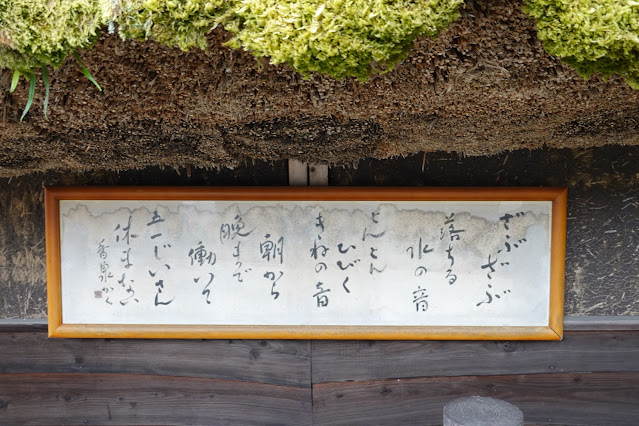 ざぶざぶ
落ちる
水の音
とんとん
ひびく
きねの音
朝から
晩まで
働いて
五一じいさん
休まない